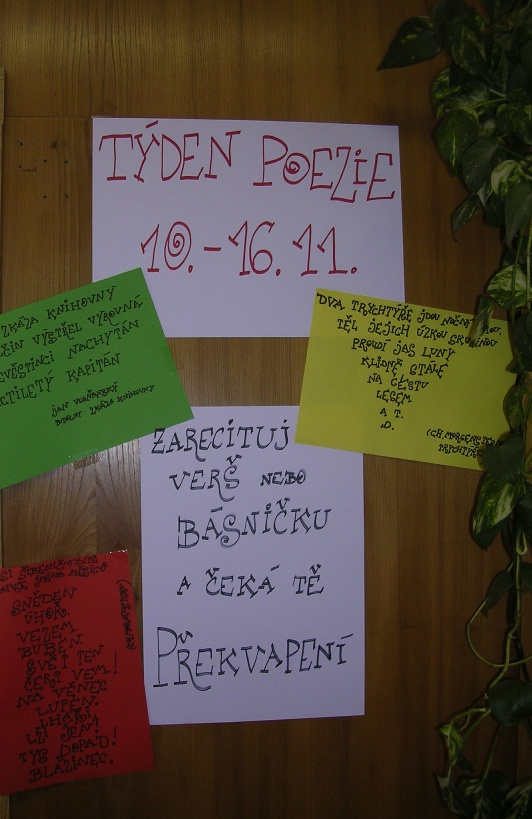 TÝDEN POEZIE
10. - 16. 11.
ZKÁZA KNIHOVNY
VÝSTŘEL VYROVNÁ
NACHYTÁN
KAPITÁN
JAN
ZKÁZA KNIHOVNY
DVA TRYCHTÝŘE JDOU NOČNÍ
TĚL JEJICH ÚZKOU
PROUDÍ JAS LUNY
KLIDNĚ STÁLE
NA CESTU
LESEM
A T.
D.
(CH. MORGENSTERN
ZARECITUJ
VERŠ NEBO
BÁSNIČKU
A ČEKÁ TĚ
PŘEKVAPENÍ
SNĚDEN
ÚHOŘ.
VEZEM
BUBEN.
SVĚT TEN
ČERT VEM!
NA VĚNEC
LUPEN.
LHÁŘ!
LŽ JEN!
TYS DOPAD!
BLÁZINEC.